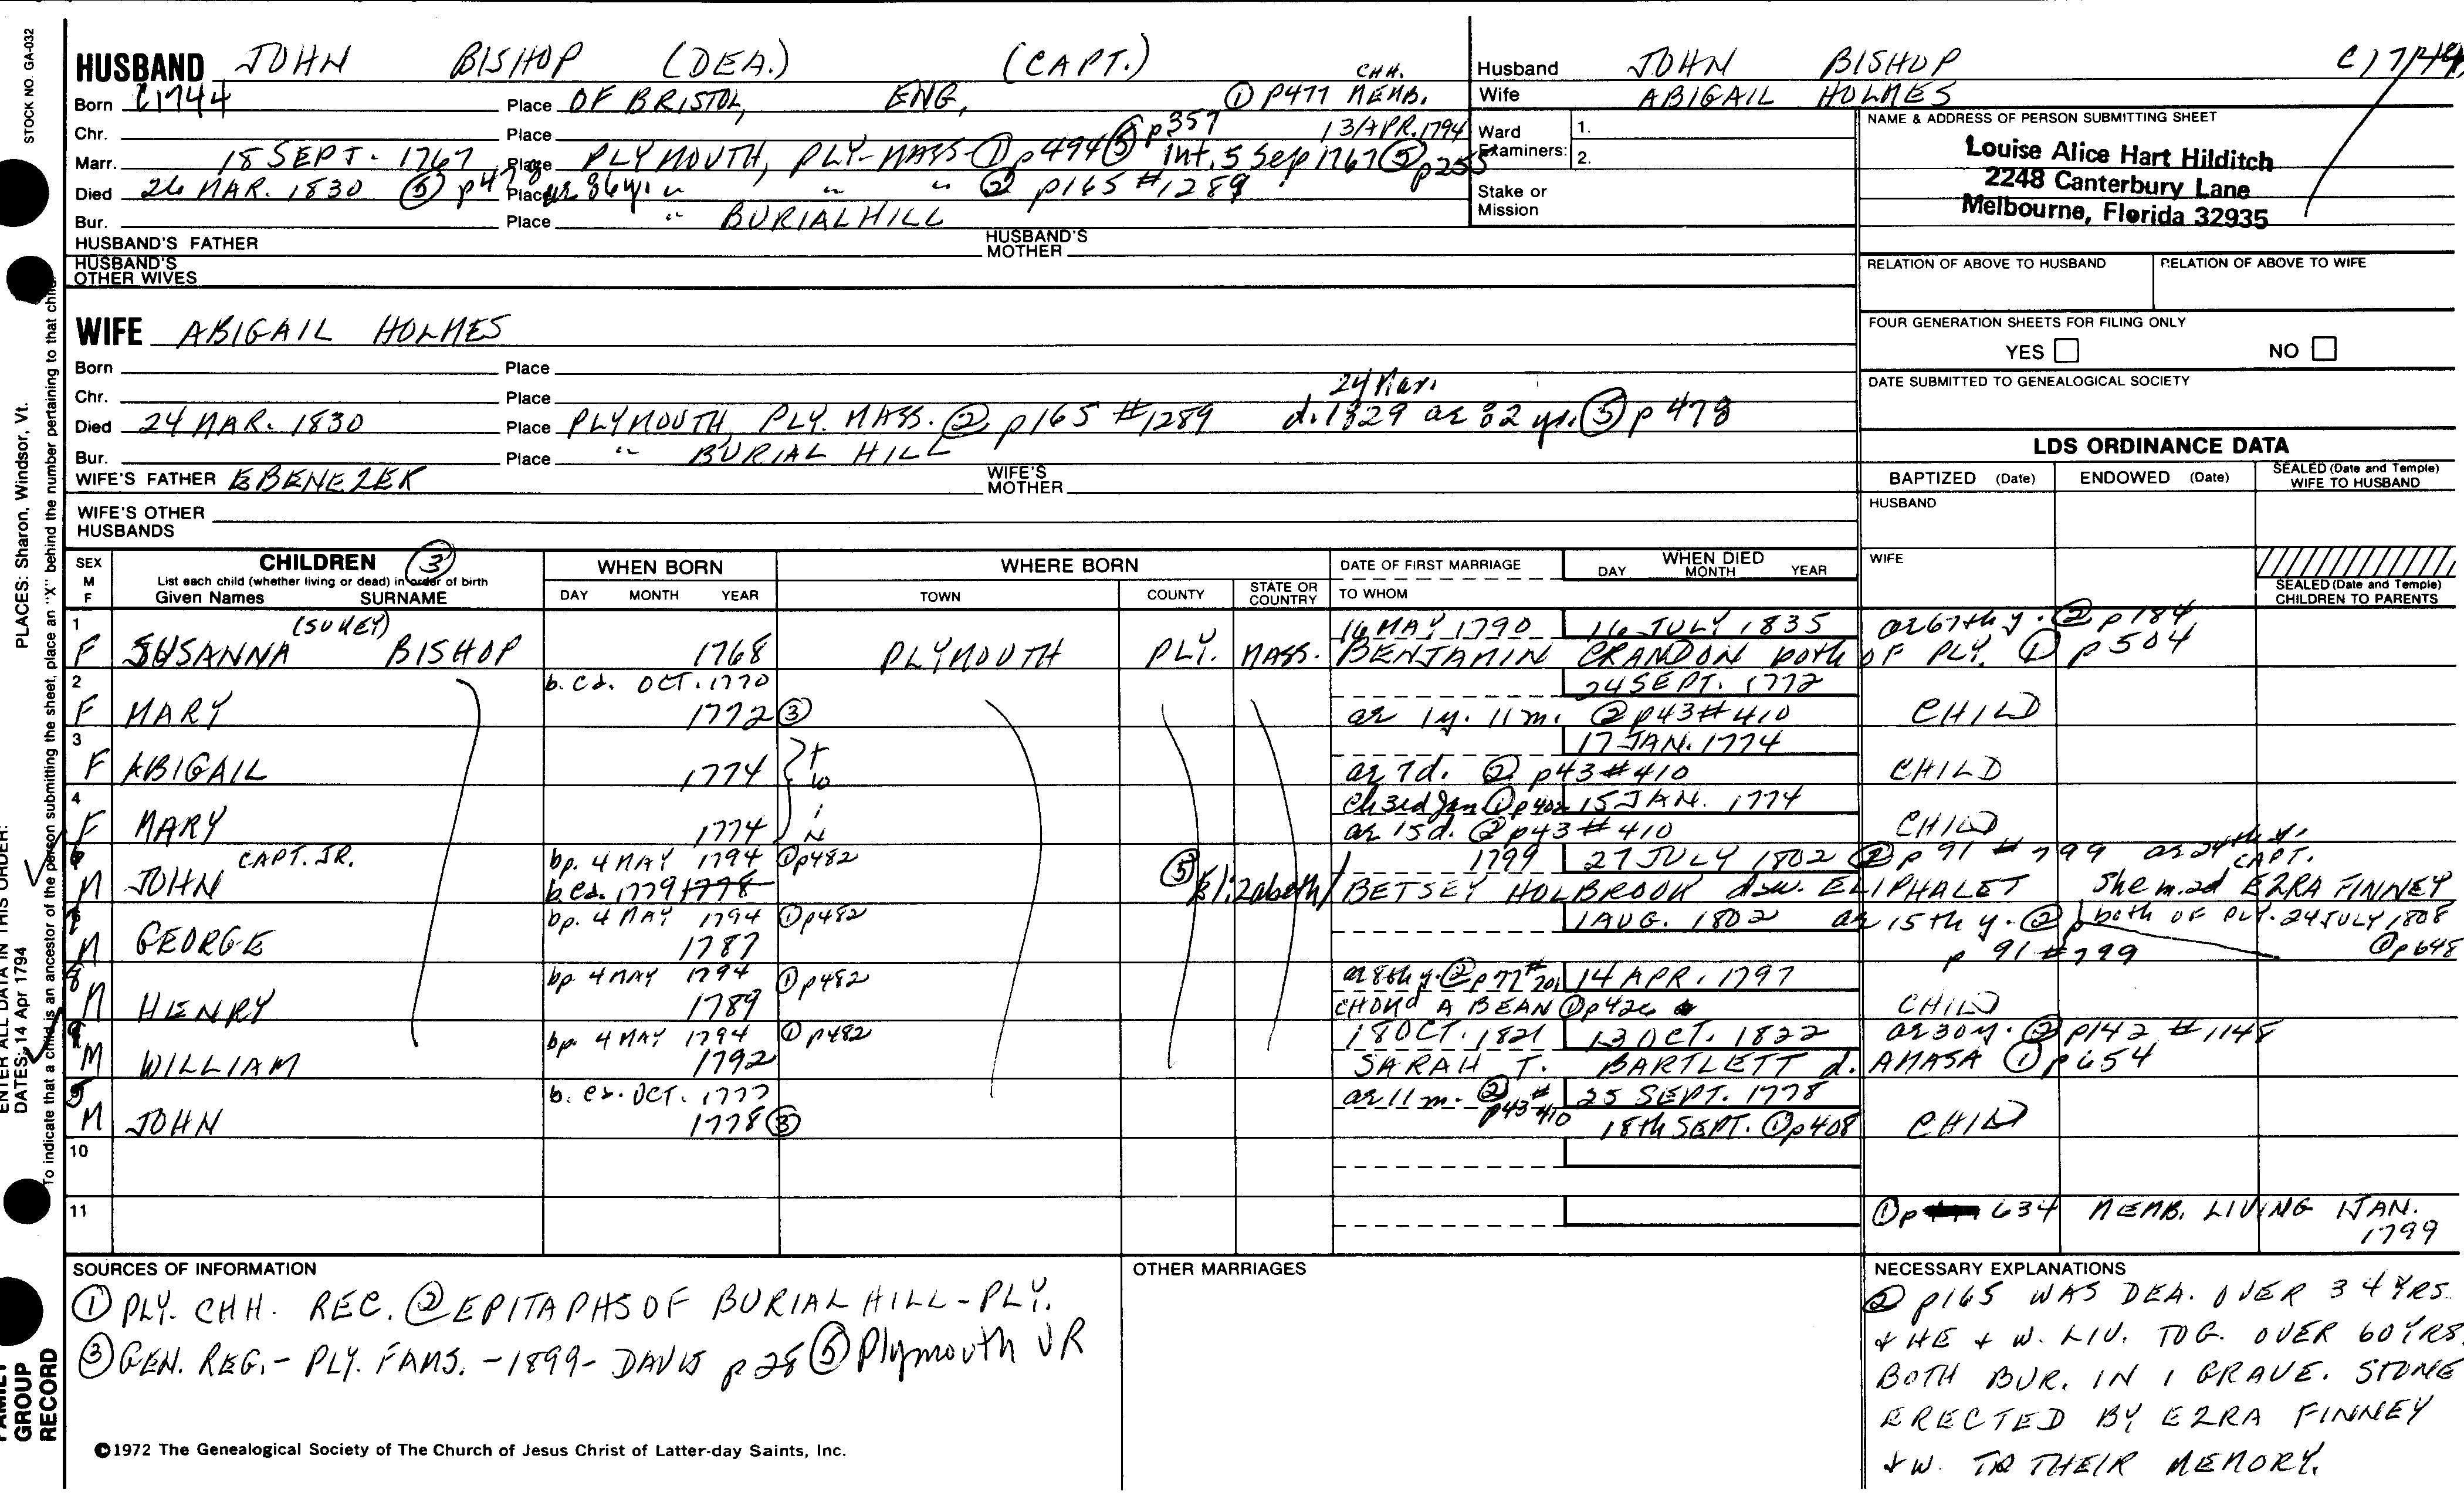 STOCK NO. GA-032
PLACES: Sharon, Windsor, Vt.
ENTER ALL DATA IN THIS ORDER:
DATES: 14 Apr 1794
To indicate that a child is an ancestor of the person submitting the sheet, place an "X" behind the number pertaining to that child.
FAMILY GROUP RECORD
HUSBAND JOHN BISHOP (DEA.) (CAPT.)
Born C1744 Place OF BRISTOL, ENG, ① P477 CHH. MEMB.
Chr. Place 13/APR. 1794
Marr. 18 SEPT. 1767 Place PLYMOUTH, PLY-MASS-① p494 ⑤ p357 int. 5 Sep 1767 ⑤ p255
Died 26 MAR. 1830 ⑤ p478 ae 86 y. Place " " " ② p165 #1289
Bur. Place " BURIAL HILL
HUSBAND'S FATHER HUSBAND'S MOTHER
HUSBAND'S OTHER WIVES
Husband JOHN BISHOP C1744
Wife ABIGAIL HOLMES
Ward Examiners: 1. 2.
Stake or Mission
NAME & ADDRESS OF PERSON SUBMITTING SHEET
Louise Alice Hart Hilditch
2248 Canterbury Lane
Melbourne, Florida 32935
RELATION OF ABOVE TO HUSBAND RELATION OF ABOVE TO WIFE
FOUR GENERATION SHEETS FOR FILING ONLY
YES NO
DATE SUBMITTED TO GENEALOGICAL SOCIETY
WIFE ABIGAIL HOLMES
Born Place
Chr. Place
24 Mar.
Died 24 MAR. 1830 Place PLYMOUTH, PLY. MASS. ② p165 #1289 d. 1829 ae 82 yr. ⑤ p 478
Bur. Place " BURIAL HILL
WIFE'S FATHER EBENEZER WIFE'S MOTHER
WIFE'S OTHER HUSBANDS
LDS ORDINANCE DATA
BAPTIZED (Date) ENDOWED (Date) SEALED (Date and Temple) WIFE TO HUSBAND
HUSBAND
WIFE
SEALED (Date and Temple) CHILDREN TO PARENTS
SEX M F
CHILDREN ③
List each child (whether living or dead) in order of birth
Given Names SURNAME
WHEN BORN DAY MONTH YEAR
WHERE BORN TOWN COUNTY STATE OR COUNTRY
DATE OF FIRST MARRIAGE TO WHOM
WHEN DIED DAY MONTH YEAR
1 (SUKEY) 16 MAY 1790 16 JULY 1835 ae 67th y. ② p 184
F SUSANNA BISHOP 1768 PLYMOUTH PLY. MASS. BENJAMIN CRANDON both OF PLY. ① p 504
2 b. ca. OCT. 1770 24 SEPT. 1772
F MARY 1772 ③ ae 1y. 11m. ② p43 #410 CHILD
3 17 JAN. 1774
F ABIGAIL 1774 twin ae 7d. ② p43 #410 CHILD
4 Ch 3rd Jan ① p402 15 JAN. 1774
F MARY 1774 ae 15d. ② p43 #410 CHILD
CAPT. JR. bp. 4 MAY 1794 ① p482 1799 27 JULY 1802 ② p 91 #799 ae 24th y.
M JOHN b. ca. 1779 1778 ⑤ Elizabeth/ BETSEY HOLBROOK daw. ELIPHALET She m. 2d CAPT. EZRA FINNEY
bp. 4 MAY 1794 ① p482 1 AUG. 1802 ae 15th y. ② both OF PLY. 24 JULY 1808
M GEORGE 1787 p 91 #799 ① p648
8 bp 4 MAY 1794 ① p482 ae 8th y. ② p77 #701 14 APR. 1797
M HENRY 1789 CHOKd A BEAN ① p426 CHILD
bp. 4 MAY 1794 ① p482 18 OCT. 1821 13 OCT. 1822 ae 30 y. ② p142 #1148
M WILLIAM 1792 SARAH T. BARTLETT d. AMASA ① p 654
5 b. ca. OCT. 1777 ae 11 m. ② p43 #410 25 SEPT. 1778
M JOHN 1778 ③ 18th SEPT. ① p408 CHILD
10
11 ① p 634 MEMB. LIVING 1 JAN. 1799
SOURCES OF INFORMATION
① PLY. CHH. REC. ② EPITAPHS OF BURIAL HILL-PLY.
③ GEN. REG. - PLY. FAMS. - 1899 - DAVIS p 28 ⑤ Plymouth VR
©1972 The Genealogical Society of The Church of Jesus Christ of Latter-day Saints, Inc.
OTHER MARRIAGES
NECESSARY EXPLANATIONS
② p165 WAS DEA. OVER 34 YRS.
& HE & W. LIV. TOG. OVER 60 YRS.
BOTH BUR. IN 1 GRAVE. STONE
ERECTED BY EZRA FINNEY
& W. TO THEIR MEMORY.